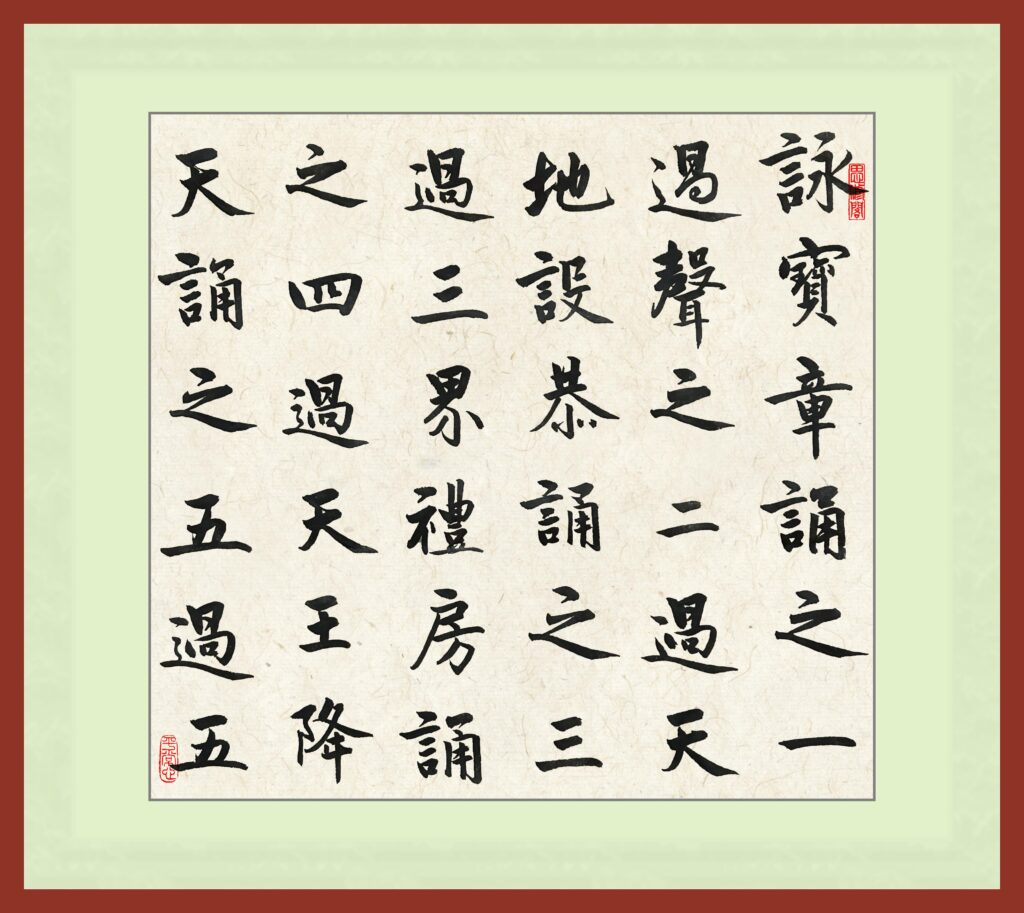 詠寶章誦之一
過聲之二過天
地設恭誦之三
過三界禮房誦
之四過天王降
天誦之五過五